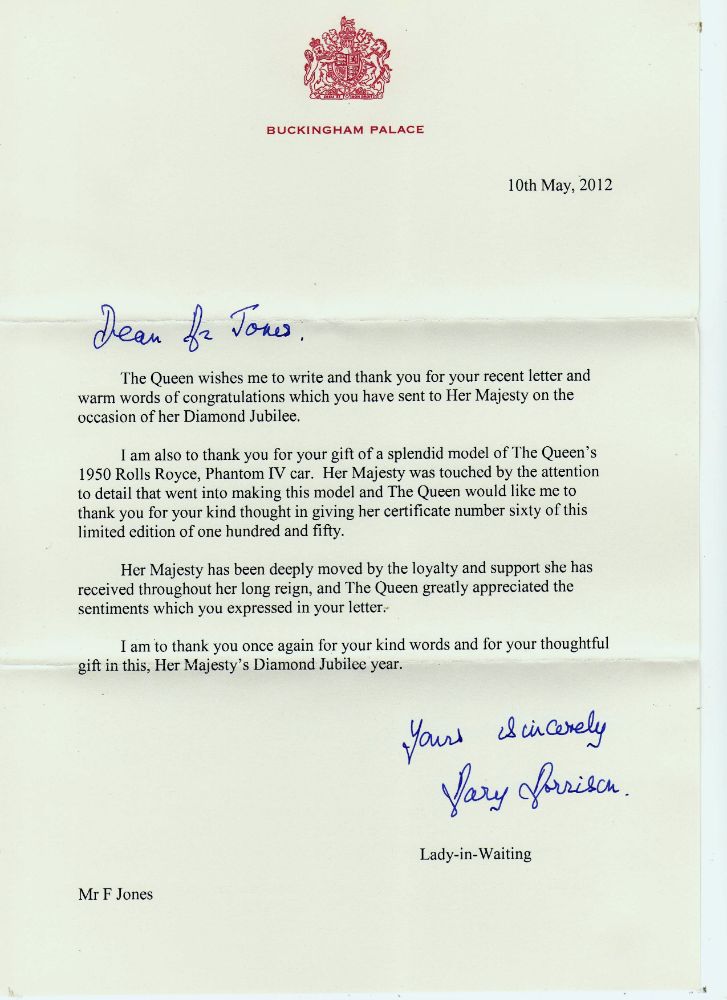 BUCKINGHAM PALACE
10th May, 2012
Dear Mr Jones.
The Queen wishes me to write and thank you for your recent letter and
warm words of congratulations which you have sent to Her Majesty on the
occasion of her Diamond Jubilee.
I am also to thank you for your gift of a splendid model of The Queen's
1950 Rolls Royce, Phantom IV car. Her Majesty was touched by the attention
to detail that went into making this model and The Queen would like me to
thank you for your kind thought in giving her certificate number sixty of this
limited edition of one hundred and fifty.
Her Majesty has been deeply moved by the loyalty and support she has
received throughout her long reign, and The Queen greatly appreciated the
sentiments which you expressed in your letter.
I am to thank you once again for your kind words and for your thoughtful
gift in this, Her Majesty's Diamond Jubilee year.
Yours sincerely
Mary Morrison.
Lady-in-Waiting
Mr F Jones